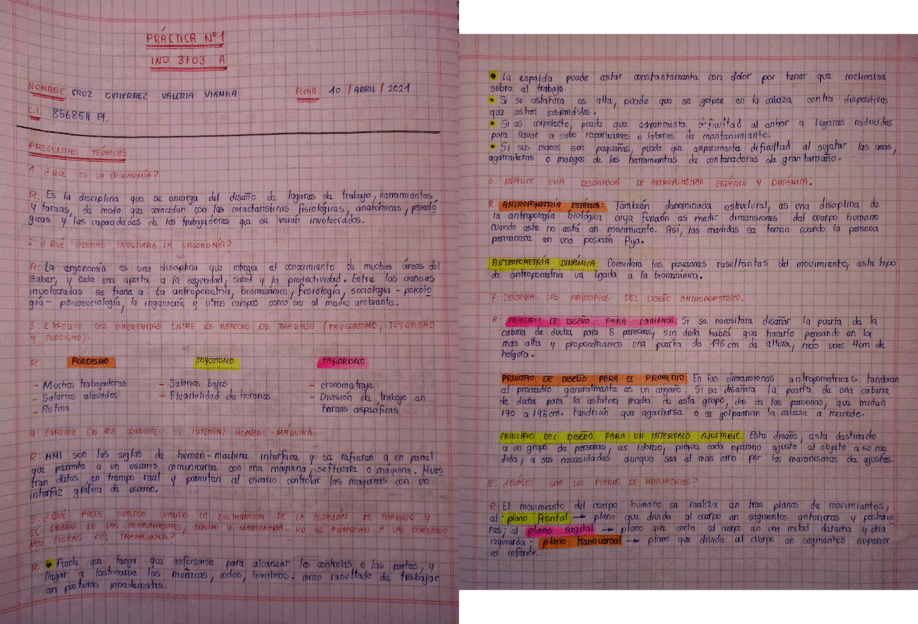 PRÁCTICA Nº1
IND 3703 A
NOMBRE: CRUZ GUTIERREZ VALERIA VIANKA FECHA: 10 / ABRIL / 2021
C.I. 8568511 Pt.
PREGUNTAS TEÓRICAS
1. ¿QUE ES LA ERGONOMIA?
R: Es la disciplina que se encarga del diseño de lugares de trabajo, herramientas
y tareas, de modo que coincidan con las características fisiológicas, anatómicas, psicoló
gicas y las capacidades de los trabajadores que se vean involucrados.
2. ¿QUÉ CIENCIAS INVOLUCRA LA ERGONOMÍA?
R: La ergonomía es una disciplina que integra el conocimiento de muchas áreas del
saber, y cada una aporta a la seguridad, salud y la productividad. Entre las ciencias
involucradas se tiene a: la antropometría, biomecánica, fisiología, sociología - psicolo
gía - psicosociología, la ingeniería e otros campos como ser el medio ambiente.
3. ENFOQUE LAS DIFERENCIAS ENTRE LOS METODOS DE TRABAJO (TAYLORISMO, TOYOTISMO
Y FORDISMO).
R: FORDISMO TOYOTISMO TAYLORISMO
- Muchos trabajadores - Salarios bajos - cronometraje
- Salarios elevados - Flexibilidad de horarios - División de trabajo en
- Rutina tareas específicas
4. EXPLIQUE EN QUE CONSISTE EL INTERFAZ HOMBRE-MÁQUINA.
R: HMI son las siglas de human-machine interface y se refieren a un panel
que permite a un usuario comunicarse con una maquina, software o maquina. Mues
tran datos en tiempo real y permiten al usuario controlar las maquinas con un
interfaz gráfica de usuario.
5. ¿QUÉ PUEDE SUCEDER CUANDO LA DISTRIBUCION DE LA ESTACIÓN DE TRABAJO Y
EL DISEÑO DE LAS HERRAMIENTAS, EQUIPO Y MAQUINARIA NO SE ACOMODAN A LAS
DEL TRABAJADOR?
R: • Puede que tenga que esforzarse para alcanzar los controles o las partes, y
llegar a lastimarse las muñecas, codos, hombros como resultado de trabajar
en posturas inadecuadas.
• La espalda puede estar constantemente con dolor por tener que inclinarse
sobre el trabajo.
• Si su estatura es alta, puede que se golpee en la cabeza contra dispositivos
que estén suspendidos.
• Si es corpulento, puede que experimente dificultad al entrar a lugares reducidos
para llevar a cabo reparaciones o labores de mantenimiento.
• Si sus manos son pequeñas, puede que experimente dificultad al sujetar las asas,
agarraderas o mangos de las herramientas de contenedoras de gran tamaño.
6. REALICE UNA DESCRIPCION DE ANTROPOMETRIA ESTÁTICA Y DINÁMICA.
R: ANTROPOMETRÍA ESTÁTICA: También denominada estructural, es una disciplina de
la antropología biológica cuya función es medir dimensiones del cuerpo humano
cuando este no está en movimiento. Así, las medidas se toman cuando la persona
permanece en una posición fija.
ANTROPOMETRÍA DINÁMICA: Considera las posiciones resultantes del movimiento, este tipo
de antropometría va ligada a la biomecánica.
7. DESCRIBA LOS PRINCIPIOS DEL DISEÑO ANTROPOMETRICO.
R: PRINCIPIO DE DISEÑO PARA EXTREMOS: Si se necesitara diseñar la puerta de la
cabina de ducha para 5 personas, sin duda habrá que hacerlo pensando en la
mas alta y proporcionarme una puerta de 195 cm de altura, más unos 4cm de
holgura.
PRINCIPIO DE DISEÑO PARA EL PROMEDIO: En las dimensiones antropometricas tambien
el promedio generalmente es un engaño. Si se diseñara la puerta de una cabina
de ducha para la estatura media de este grupo, dos de las personas, que midan
190 a 195cm. tendrían que agacharse o se golpearían la cabeza a menudo.
PRINCIPIO DEL DISEÑO PARA UN INTERVALO AJUSTABLE: Este diseño, esta destinado
a un grupo de personas, es idoneo, porque cada operario ajusta el objeto a su me
dida, a sus necesidades. aunque sea el mas caro por los mecanismos de ajustes.
8. ¿CUÁLES SON LOS PLANOS DE MOVIMIENTOS?
R: El movimiento del cuerpo humano se realiza en tres planos de movimientos,
el plano frontal → plano que divide al cuerpo en segmentos anteriores y posterio
res; el plano sagital → plano que corta al cuerpo en una mitad derecha y otra
izquierda - plano transversal → plano que divide al cuerpo en segmentos superior
e inferior.